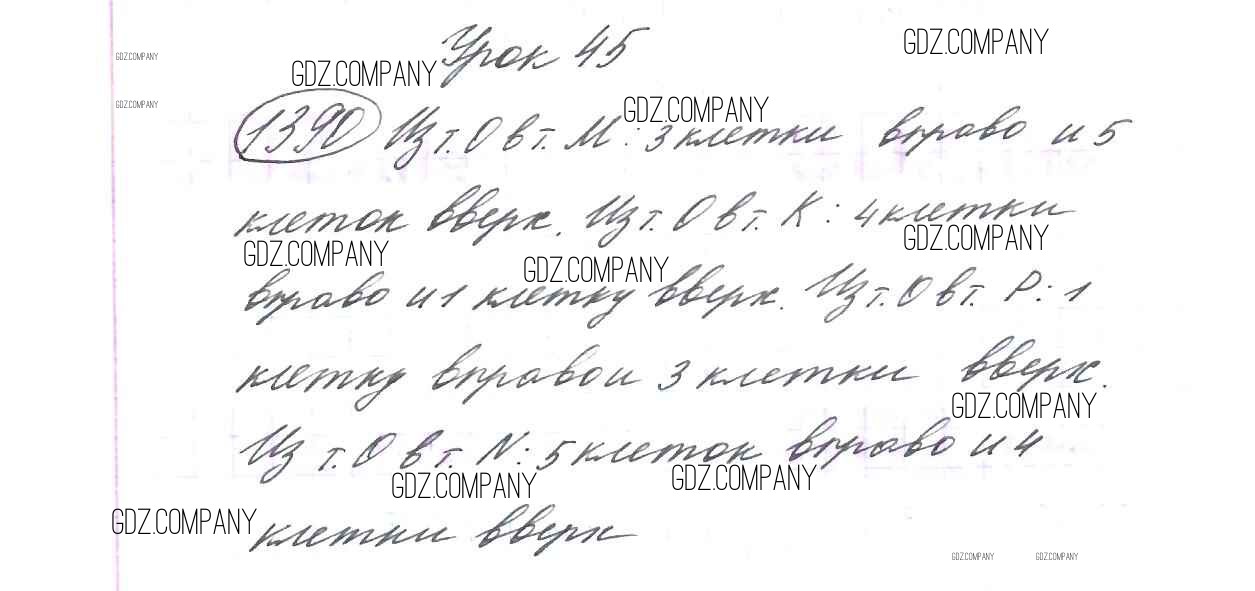 Урок 45
GDZ.COMPANY
GDZ.COMPANY
GDZ.COMPANY
GDZ.COMPANY
GDZ.COMPANY
1390 Из т. О в т. М: 3 клетки вправо и 5
клеток вверх. Из т. О в т. К: 4 клетки
GDZ.COMPANY
GDZ.COMPANY
GDZ.COMPANY
вправо и 1 клетку вверх. Из т. О в т. Р: 1
клетку вправо и 3 клетки вверх.
GDZ.COMPANY
Из т. О в т. N: 5 клеток вправо и 4
GDZ.COMPANY
GDZ.COMPANY
GDZ.COMPANY
клетки вверх
GDZ.COMPANY
GDZ.COMPANY